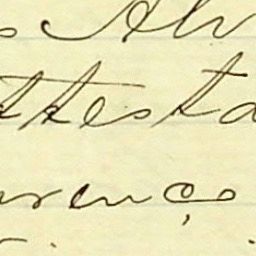 s Alv
ttesta
urenço